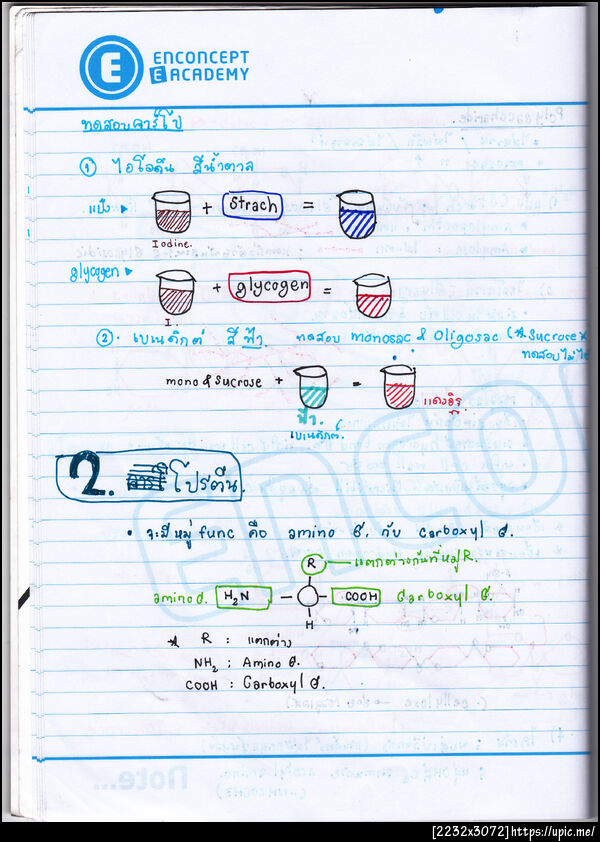 ENCONCEPT
E ACADEMY
ทดสอบคาร์โบ
① ไอโอดีน สีน้ำตาล
แป้ง + Strach =
Iodine.
glycogen + glycogen =
I.
②. เบเนดิกต์ สีฟ้า ทดสอบ monosac & Oligosac (*Sucrose*
ทดสอบไม่ได้
mono & Sucrose + =
ฟ้า. แดงอิฐ
เบเนดิกต์.
2. โปรตีน
• จะมีหมู่ func คือ amino G. กับ Carboxyl G.
R แตกต่างกันที่หมู่ R.
amino G. H₂N COOH Carboxyl G.
H
* R : แตกต่าง
NH₂ : Amino G.
COOH : Carboxyl G.
[2232x3072]https://upic.me/